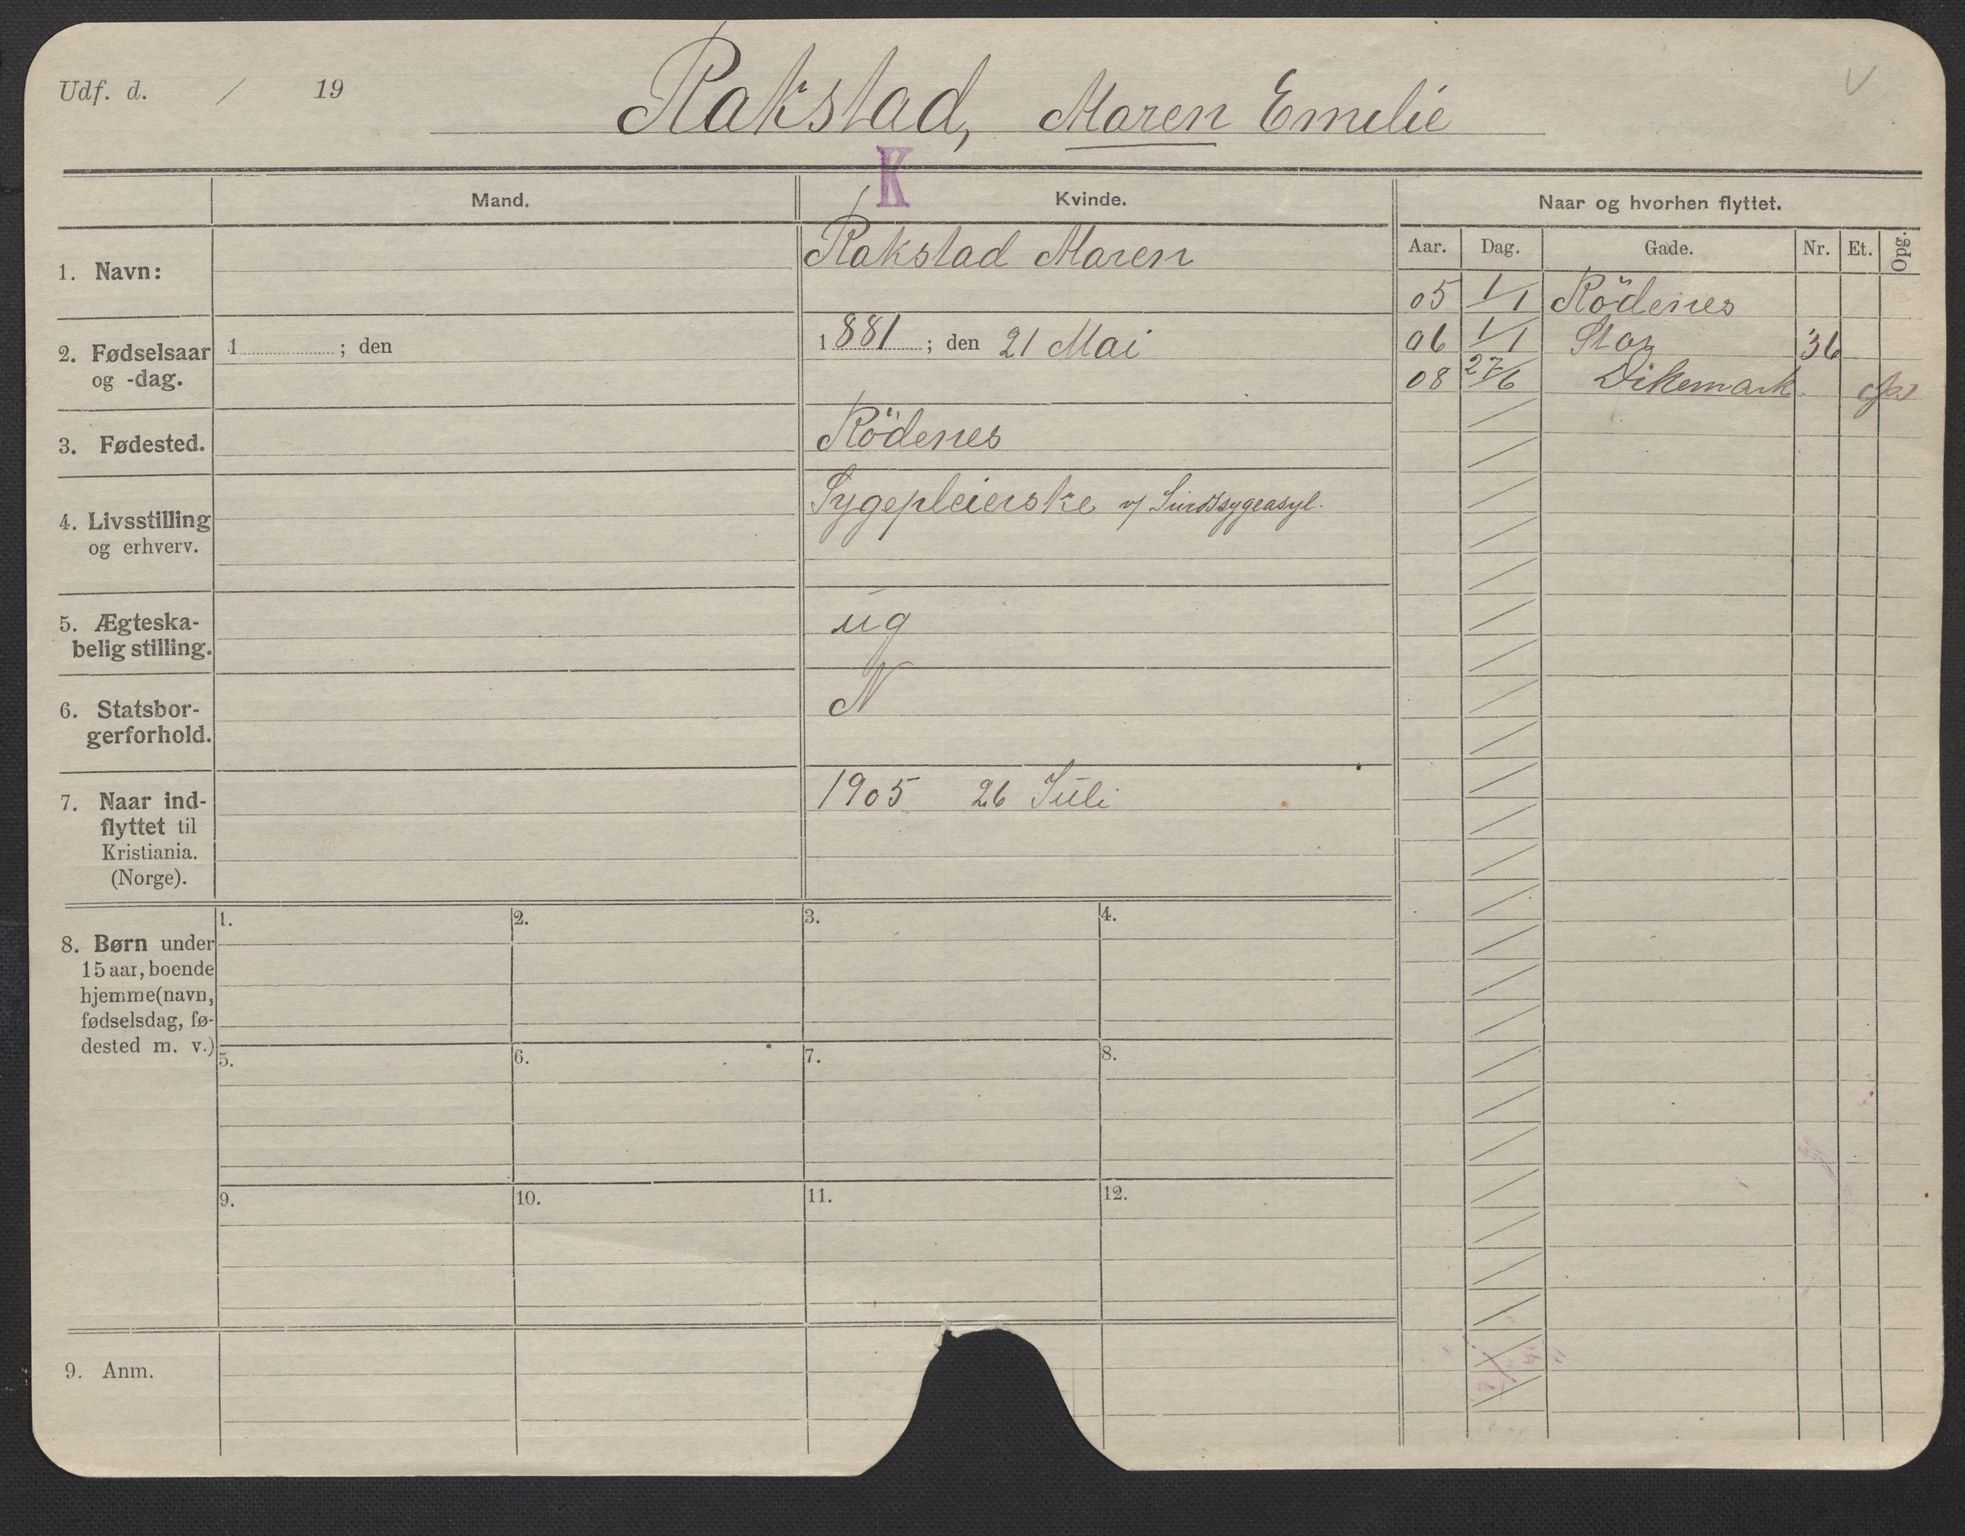 Udf. d. / 19
Rakstad, Maren Emilie
V
K
Mand.
Kvinde.
Naar og hvorhen flyttet.
Aar. Dag. Gade. Nr. Et. Opg.
1. Navn:
Rakstad Maren
05 1/1 Rödenes
06 1/1 Stor 36
08 27/6 Dikemark
2. Fødselsaar
og -dag.
1 ; den
1881 ; den 21 Mai
3. Fødested.
Rödenes
4. Livsstilling
og erhverv.
Sygepleierske v/ Sindssygeasyl.
5. Ægteska-
belig stilling.
ug
6. Statsbor-
gerforhold.
N
7. Naar ind-
flyttet til
Kristiania.
(Norge).
1905 26 Juli
8. Børn under
15 aar, boende
hjemme (navn,
fødselsdag, fø-
dested m. v.)
1. 2. 3. 4.
5. 6. 7. 8.
9. 10. 11. 12.
9. Anm.